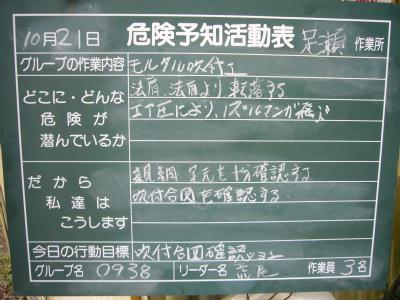 10月21日 危険予知活動表 足瀬 作業所
グループの作業内容 モルタル吹付工
どこに・どんな危険が潜んでいるか
法肩、法面より転落する
エアー圧により、ノズルマンが飛ぶ
だから私達はこうします
親綱、足元を十分確認する
吹付合図を確認する
今日の行動目標 吹付合図確認ヨシ
グループ名 0938 リーダー名 作業員 3名